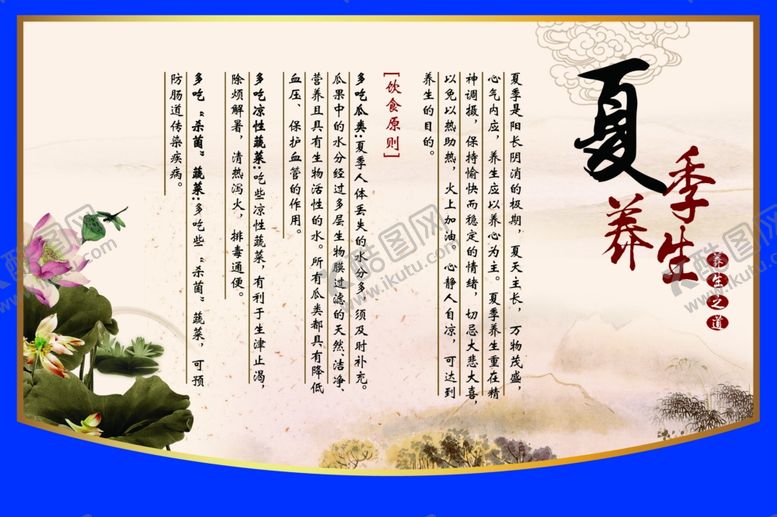 夏季养生
养生之道
夏季是阳长阴消的极期，夏天主长，万物茂盛，
心气内应，养生应以养心为主。夏季养生重在精
神调摄，保持愉快而稳定的情绪，切忌大悲大喜，
以免以热助热，火上加油。心静人自凉，可达到
养生的目的。
[饮食原则]
多吃瓜类:夏季人体丢失的水分多，须及时补充。
瓜果中的水分经过多层生物膜过滤的天然、洁净、
营养且具有生物活性的水。所有瓜类都具有降低
血压、保护血管的作用。
多吃凉性蔬菜:吃些凉性蔬菜，有利于生津止渴，
除烦解暑，清热泻火，排毒通便。
多吃“杀菌”蔬菜:多吃些“杀菌”蔬菜，可预
防肠道传染疾病。
酷图网
www.ikutu.com